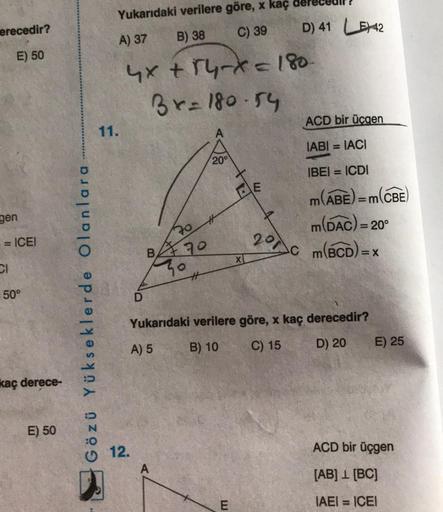 Yukarıdaki verilere göre, x kaç derecedir?
A) 37 B) 38 C) 39 D) 41 E) 42
4x + 54 - x = 180
3x = 180 - 54
erecedir?
E) 50
gen
= ICEI
CI
50°
kaç derece-
E) 50
Gözü Yükseklerde Olanlara
11.
A
20°
E
70
70
20
B
x
C
40
D
ACD bir üçgen
IABI = IACI
IBEI = ICDI
m(ABE) = m(CBE)
m(DAC) = 20°
m(BCD) = x
Yukarıdaki verilere göre, x kaç derecedir?
A) 5 B) 10 C) 15 D) 20 E) 25
12.
A
E
ACD bir üçgen
[AB] ⊥ [BC]
IAEI = ICEI